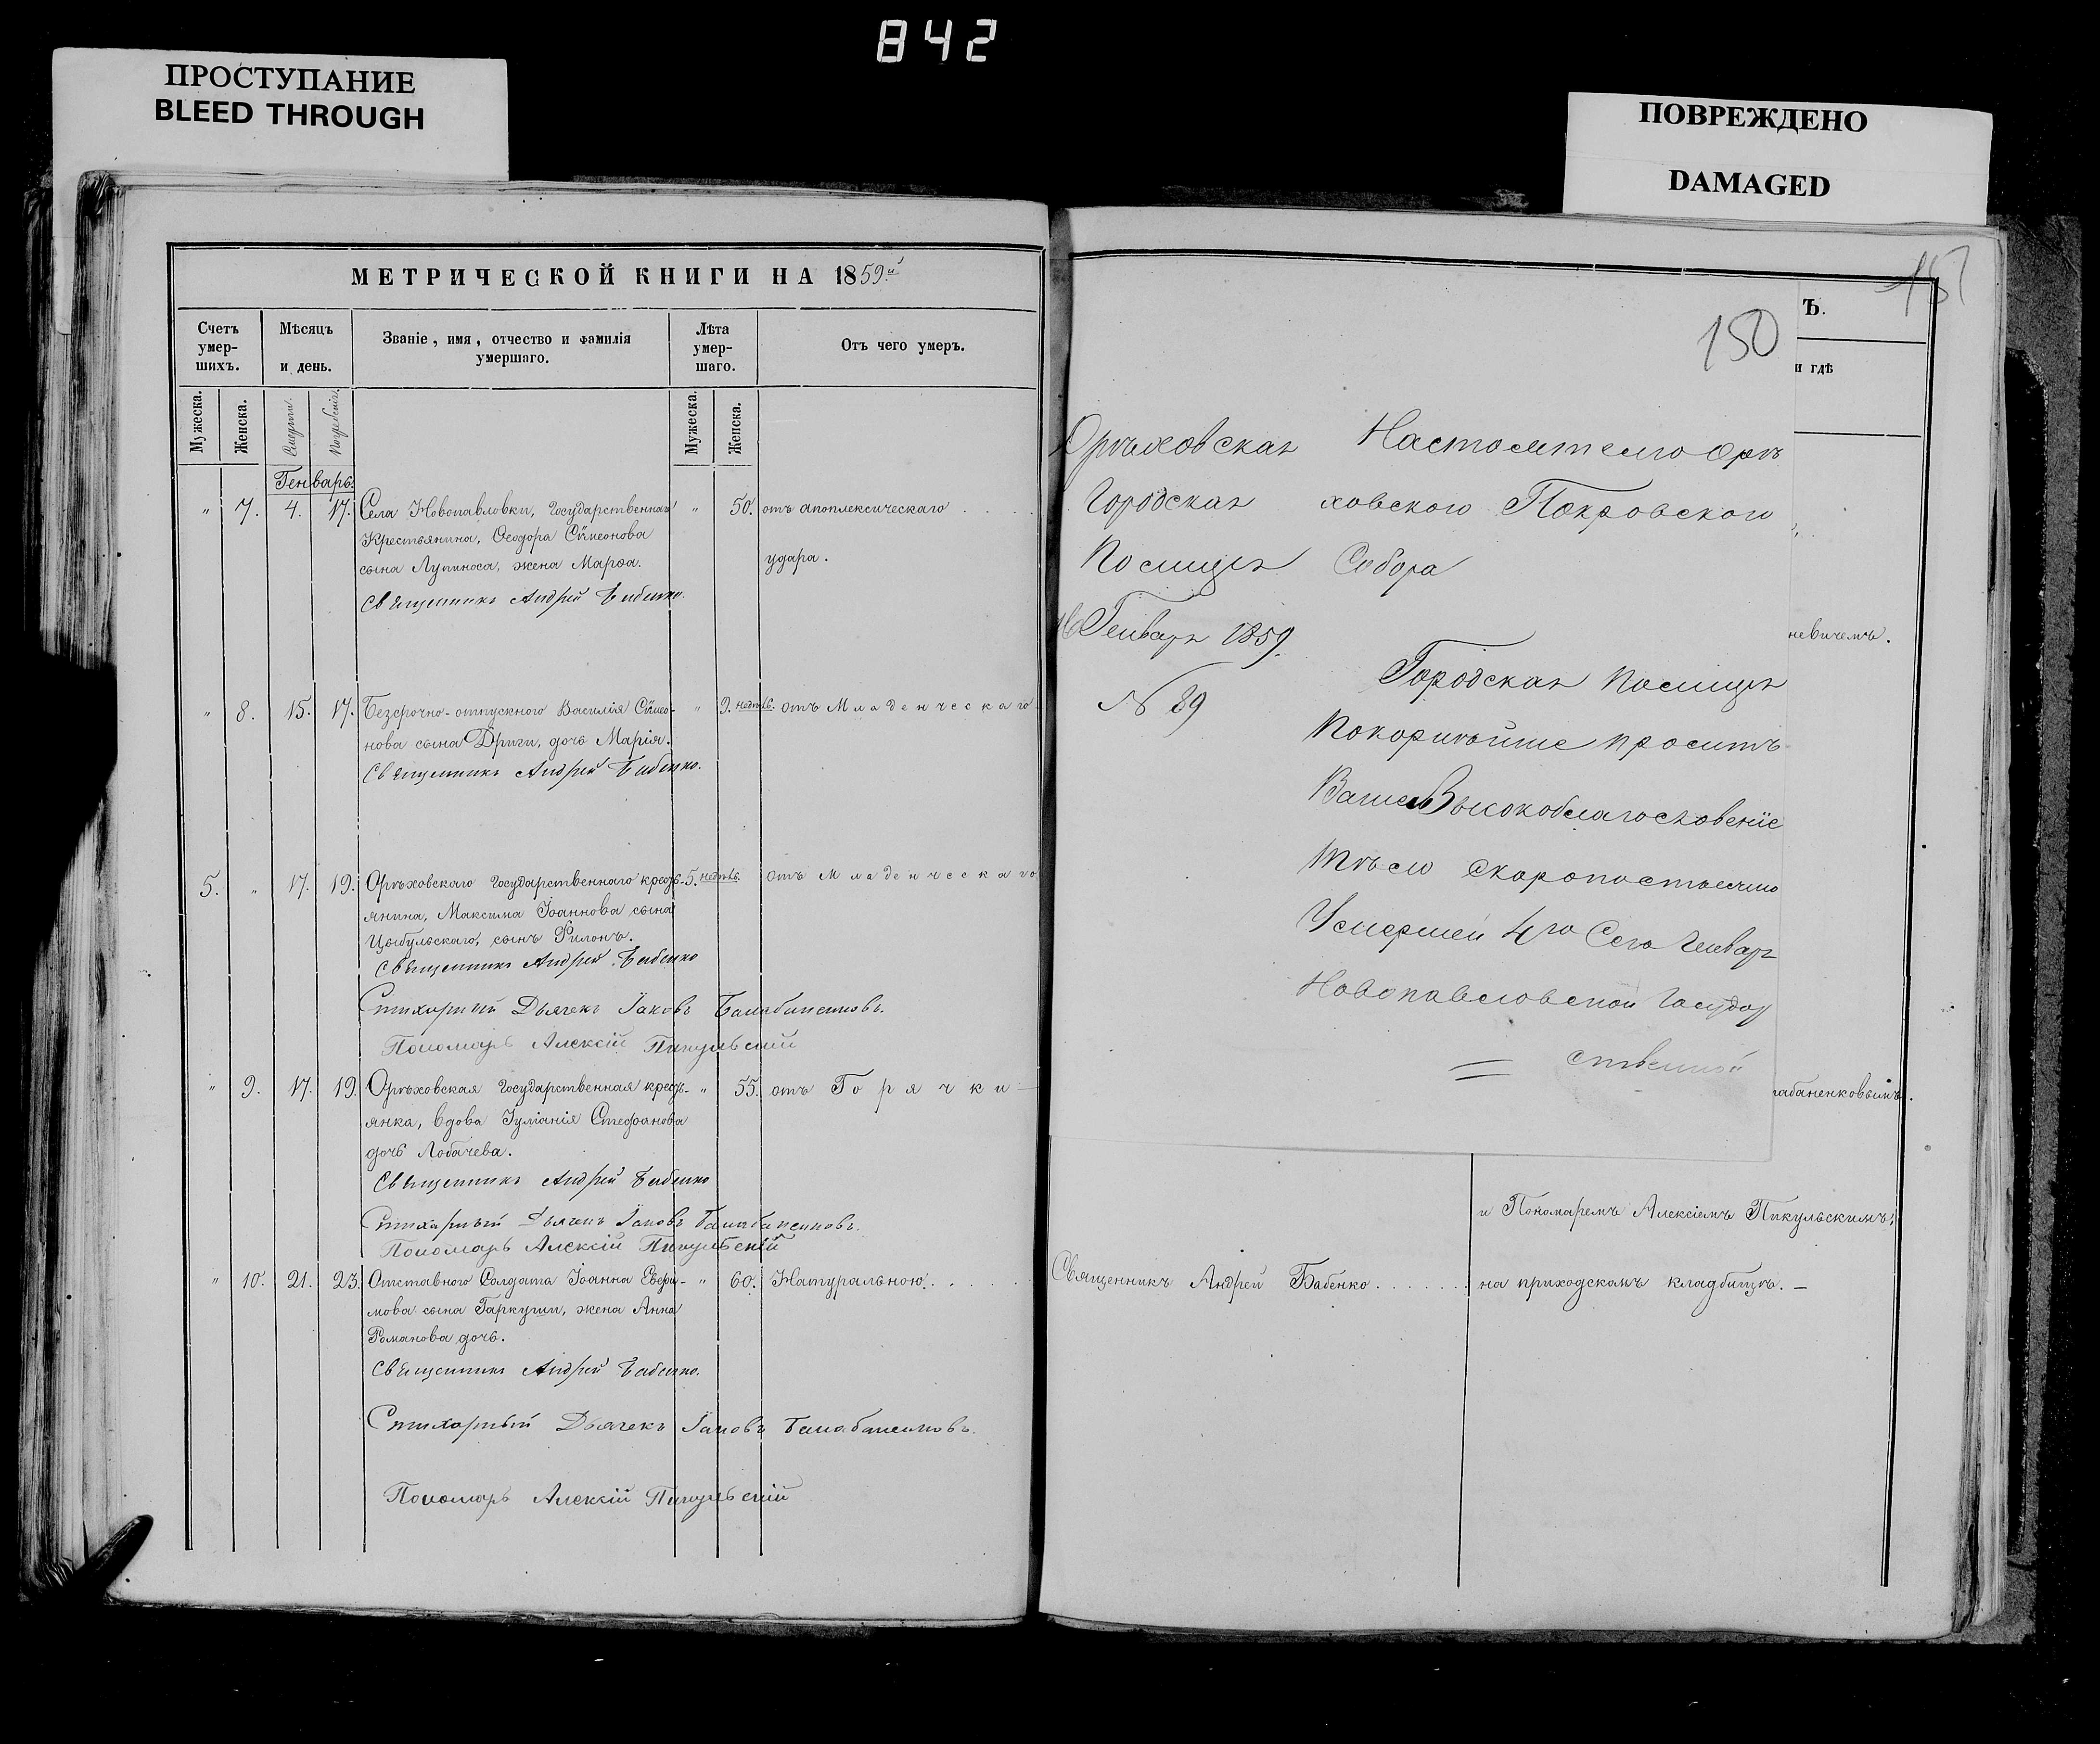 842
ПРОСТУПАНИЕ
BLEED THROUGH
ПОВРЕЖДЕНО
DAMAGED
МЕТРИЧЕСКОЙ КНИГИ НА 1859й
Счетъ умер-шихъ.
Мѣсяцъ и день.
Званіе, имя, отчество и фамилія умершаго.
Лѣта умер-шаго.
Отъ чего умеръ.
Мужеска.
Женска.
Смерти.
Погребенія.
Мужеска.
Женска.
Генварь.
" 7. 4. 17. Села Новопавловки, Государственнаго " 50. отъ апоплексическаго . . . .
Крестьянина, Ѳеодора Сѵмеонова
сына Лупиноса, жена Марѳа. удара.
Священникъ Андрей Бабенко.
" 8. 15. 17. Безсрочно-отпускного Василія Сѵмео- " 9. недѣль. отъ Младенческаго
нова сына Дриги, дочь Марія.
Священникъ Андрей Бабенко.
5. " 17. 19. Орѣховскаго Государственнаго кресть- 5. недѣль. отъ Младенческаго
янина, Максима Іоаннова сына
Цыбульскаго, сынъ Филонъ.
Священникъ Андрей Бабенко
Стихарный Дьячекъ Іаковъ Балабаненковъ.
Пономарь Алексій Пикульскій
" 9. 17. 19. Орѣховская Государственная кресть- " 55. отъ Горячки
янка, вдова Іуліанія Стефанова
дочь Лобачева.
Священникъ Андрей Бабенко
Стихарный Дьячекъ Іаковъ Балабаненковъ.
Пономарь Алексій Пикульскій
" 10. 21. 23. Отставного Солдата Іоанна Евфи- " 60. Натуральною. . . . .
мова сына Гаркуши, жена Анна
Романова дочь.
Священникъ Андрей Бабенко.
Стихарный Дьячекъ Іаковъ Балабаненковъ.
Пономарь Алексій Пикульскій
150
Ъ.
и гдѣ
Орѣховская
Городская
Полиція
16 Генваря 1859.
N 89
Настоятелю Орѣ
ховского Покровского
Собора
Городская Полиція
Покорнѣйше проситъ
Ваше Высокоблагословеніе
тѣло скоропостыжно
Умершей 4го Сего Генваря
Новопавловской Государ
ственной
невичемъ.
лабаненковымъ.
и Пономаремъ Алексіемъ Пикульскимъ,
Священникъ Андрей Бабенко . . . . . . на приходскомъ кладбищѣ. —